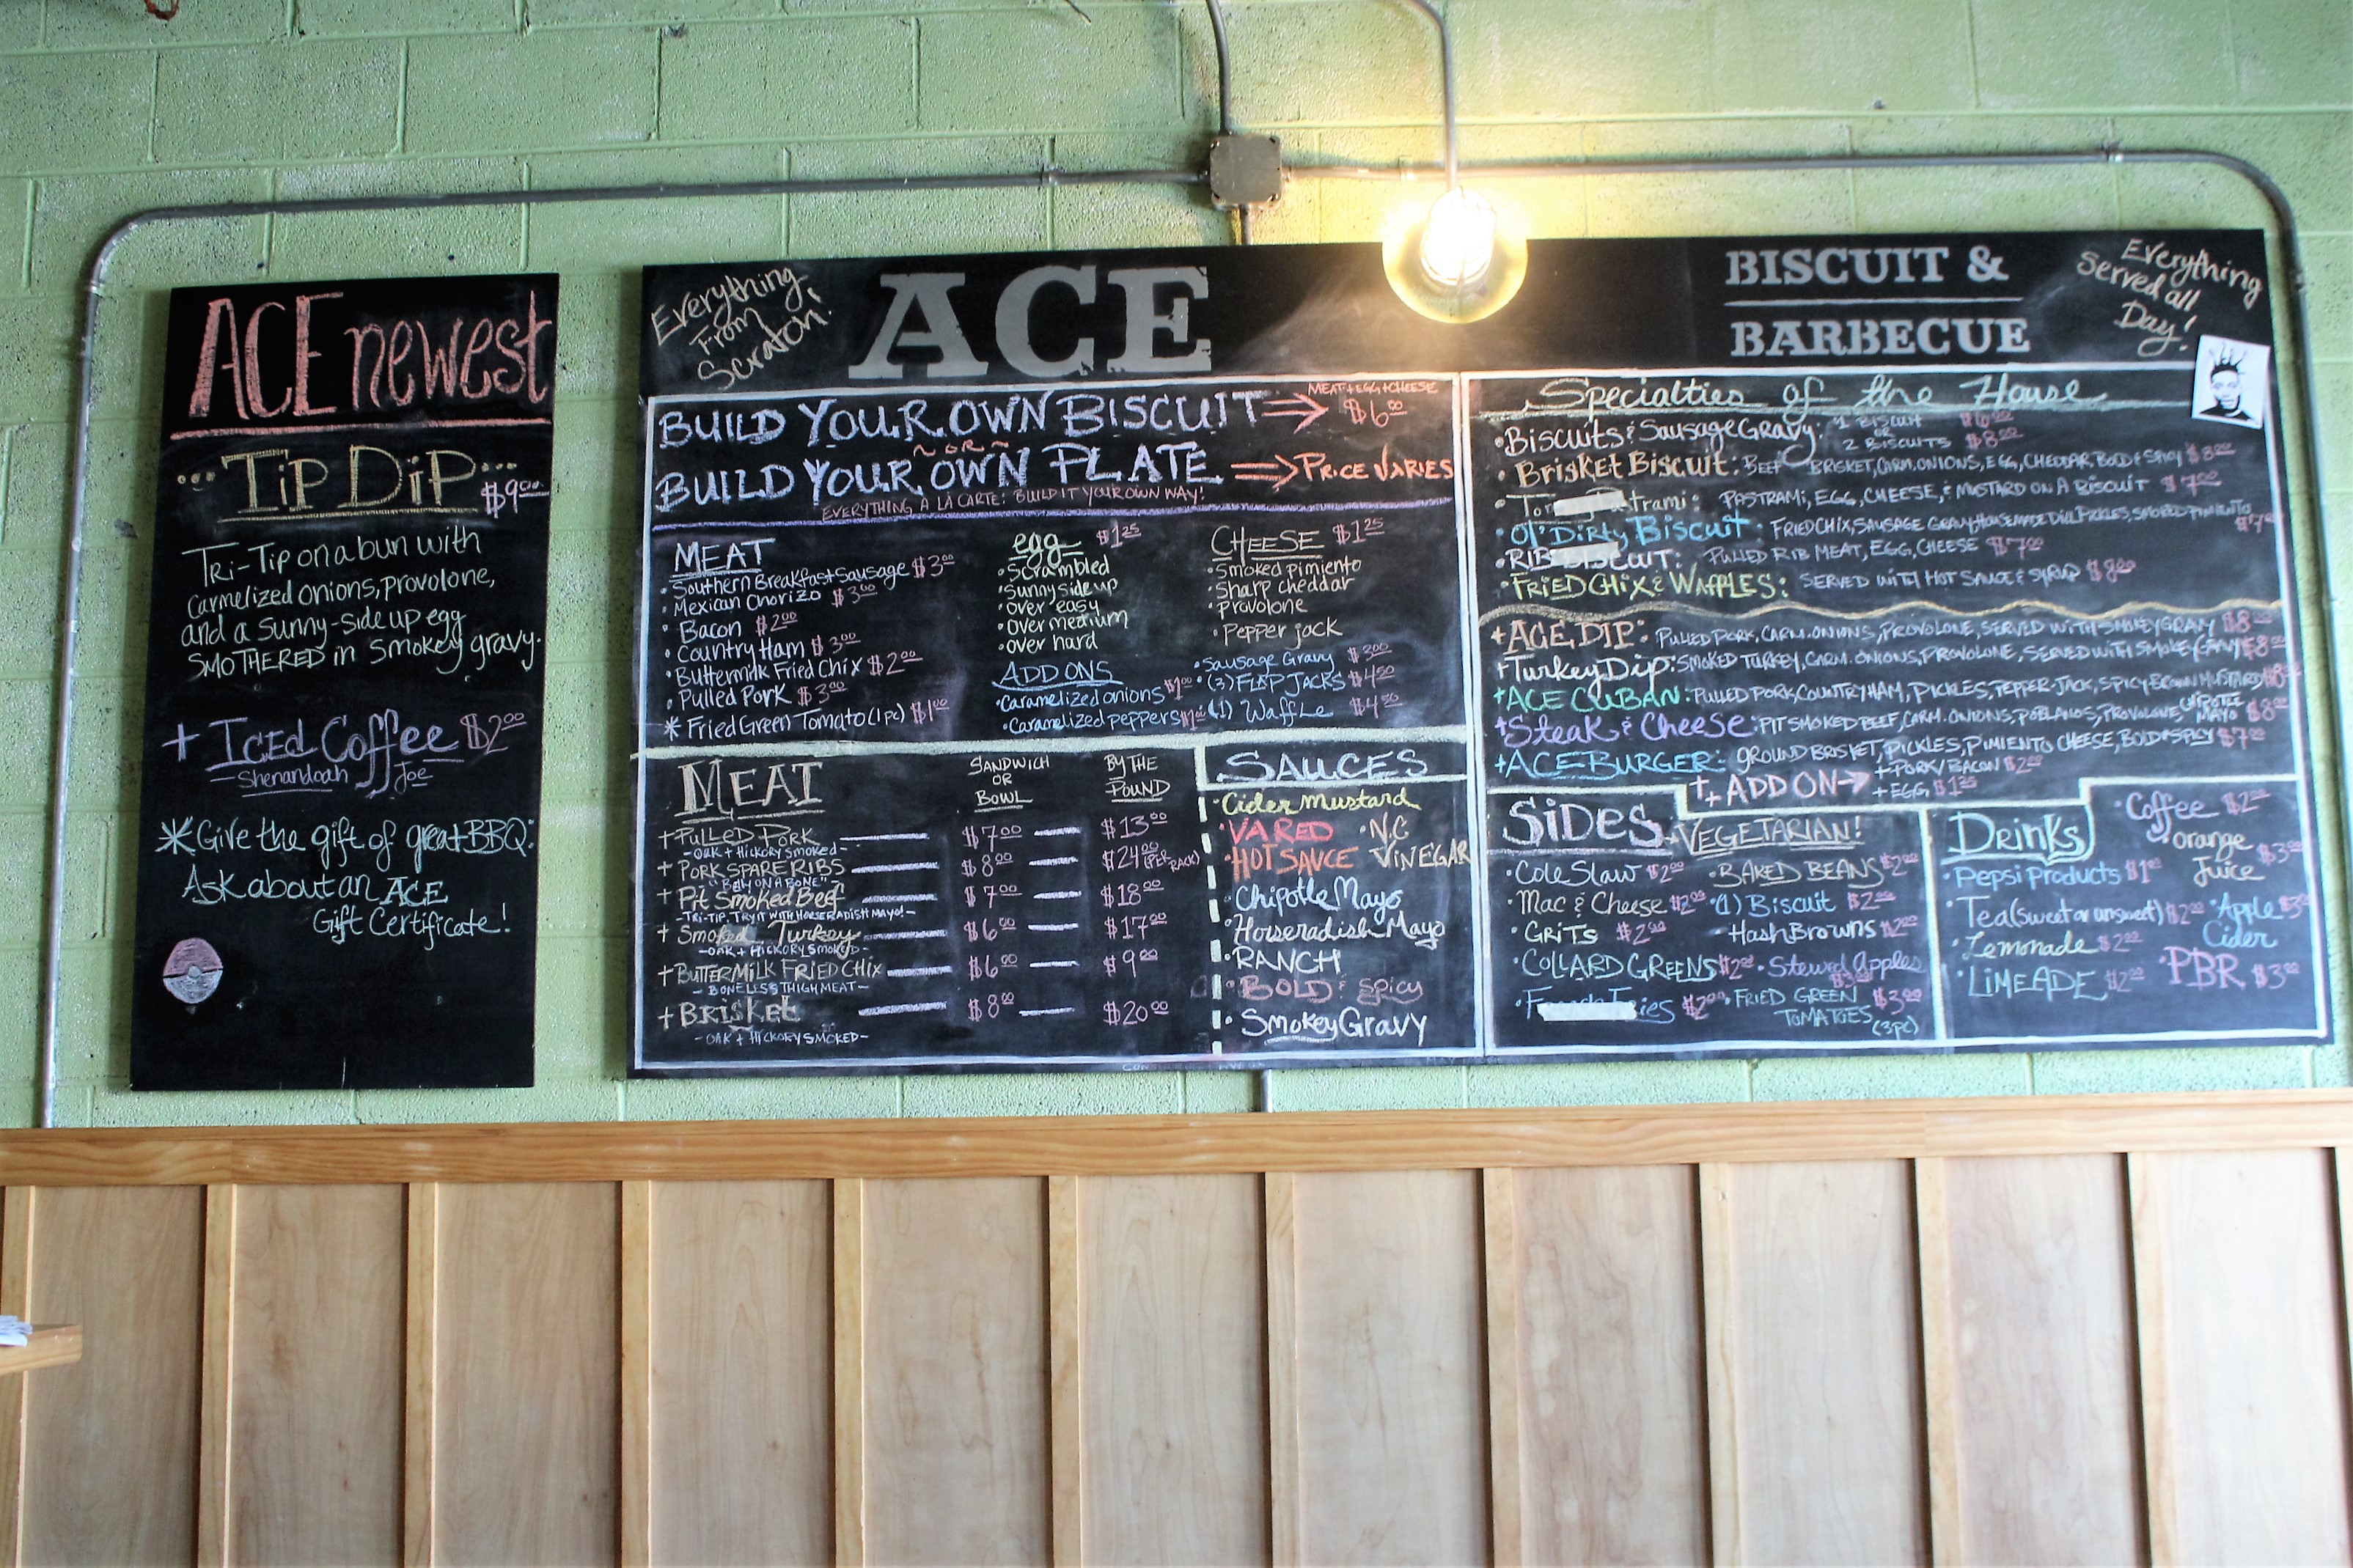 ACE newest
...Tip Dip...
$9.00
Tri-Tip on a bun with
carmelized onions, provolone,
and a sunny-side up egg
SMOTHERED in smokey gravy.
+ Iced Coffee $2.00
Shenandoah Joe
* Give the gift of great BBQ:
Ask about an ACE
Gift Certificate!
Everything
From
Scratch!
ACE
BISCUIT &
BARBECUE
Everything
Served all
Day!
BUILD YOUR OWN BISCUIT
MEAT + EGG + CHEESE
$6.00
~ OR ~
BUILD YOUR OWN PLATE PRICE VARIES
EVERYTHING A LA CARTE: BUILD IT YOUR OWN WAY!
MEAT
• Southern Breakfast Sausage $3.00
• Mexican Chorizo $3.00
• Bacon $2.00
• Country Ham $3.00
• Buttermilk Fried Chix $2.00
• Pulled Pork $3.00
* Fried Green Tomato (1pc) $1.00
egg $1.25
• Scrambled
• Sunny side up
• over easy
• over medium
• over hard
ADD ONS
• Caramelized onions $1.00
• Caramelized peppers $1.00
CHEESE $1.25
• Smoked pimiento
• Sharp cheddar
• Provolone
• Pepper jack
• Sausage Gravy $3.00
• (3) FLAP JACKS $4.50
• (1) Waffle $4.50
MEAT
SANDWICH
OR
BOWL
BY THE
POUND
+ PULLED PORK $7.00 $13.00
- OAK + HICKORY SMOKED -
+ PORK SPARE RIBS $8.00 $24.00 (PER RACK)
"Belly ON A BONE"
+ Pit Smoked Beef $7.00 $18.00
- TRI-TIP, TRY IT WITH HORSERADISH MAYO! -
+ Smoked Turkey $6.00 $17.00
- OAK + HICKORY SMOKED -
+ BUTTERMILK FRIED CHIX $6.00 $9.00
- BONELESS THIGH MEAT -
+ BRISKET $8.00 $20.00
- OAK + HICKORY SMOKED -
SAUCES
• Cider Mustard
• VA RED • N.C
• HOT SAUCE VINEGAR
• Chipotle Mayo
• Horseradish Mayo
• RANCH
• BOLD & Spicy
• Smokey Gravy
Specialties of the House
• Biscuits & Sausage Gravy: 1 BISCUIT $6.00
OR
2 BISCUITS $8.00
• Brisket Biscuit: BEEF BRISKET, CARM. ONIONS, EGG, CHEDDAR, BOLD & SPICY $8.00
• PASTRAMI, EGG, CHEESE, & MUSTARD ON A BISCUIT $7.00
• Ol' Dirty Biscuit: FRIED CHIX, SAUSAGE GRAVY, HOUSEMADE DILL PICKLES, SMOKED PIMIENTO $7.00
• RIB BISCUIT: PULLED RIB MEAT, EGG, CHEESE $7.00
• FRIED CHIX & WAFFLES: SERVED WITH HOT SAUCE & SYRUP $8.00
+ ACE DIP: PULLED PORK, CARM. ONIONS, PROVOLONE, SERVED WITH SMOKEY GRAVY $8.00
+ Turkey Dip: SMOKED TURKEY, CARM. ONIONS, PROVOLONE, SERVED WITH SMOKEY GRAVY $8.00
+ ACE CUBAN: PULLED PORK, COUNTRY HAM, PICKLES, PEPPER-JACK, SPICY BROWN MUSTARD $8.00
+ Steak & Cheese: PIT SMOKED BEEF, CARM. ONIONS, POBLANOS, PROVOLONE, CHIPOTLE MAYO $8.00
+ ACE BURGER: GROUND BRISKET, PICKLES, PIMIENTO CHEESE, BOLD & SPICY $7.00
++ ADD ON + PORK/BACON $2.00
+ EGG $1.25
SIDES VEGETARIAN!
• Cole Slaw $2.00
• Mac & Cheese $2.00
• GRITS $2.00
• COLLARD GREENS $2.00
• Fries $2.00
• BAKED BEANS $2.00
• (1) Biscuit $2.00
• Hash Browns $2.00
• Stewed Apples $3.00
• FRIED GREEN $3.00
TOMATOES (3pc)
Drinks
• Pepsi Products $1.00
• Tea (sweet or unsweet) $2.00
• Lemonade $2.00
• LIMEADE $2.00
• Coffee $2.00
• orange
Juice $3.00
• Apple $3.00
Cider
• PBR $3.00